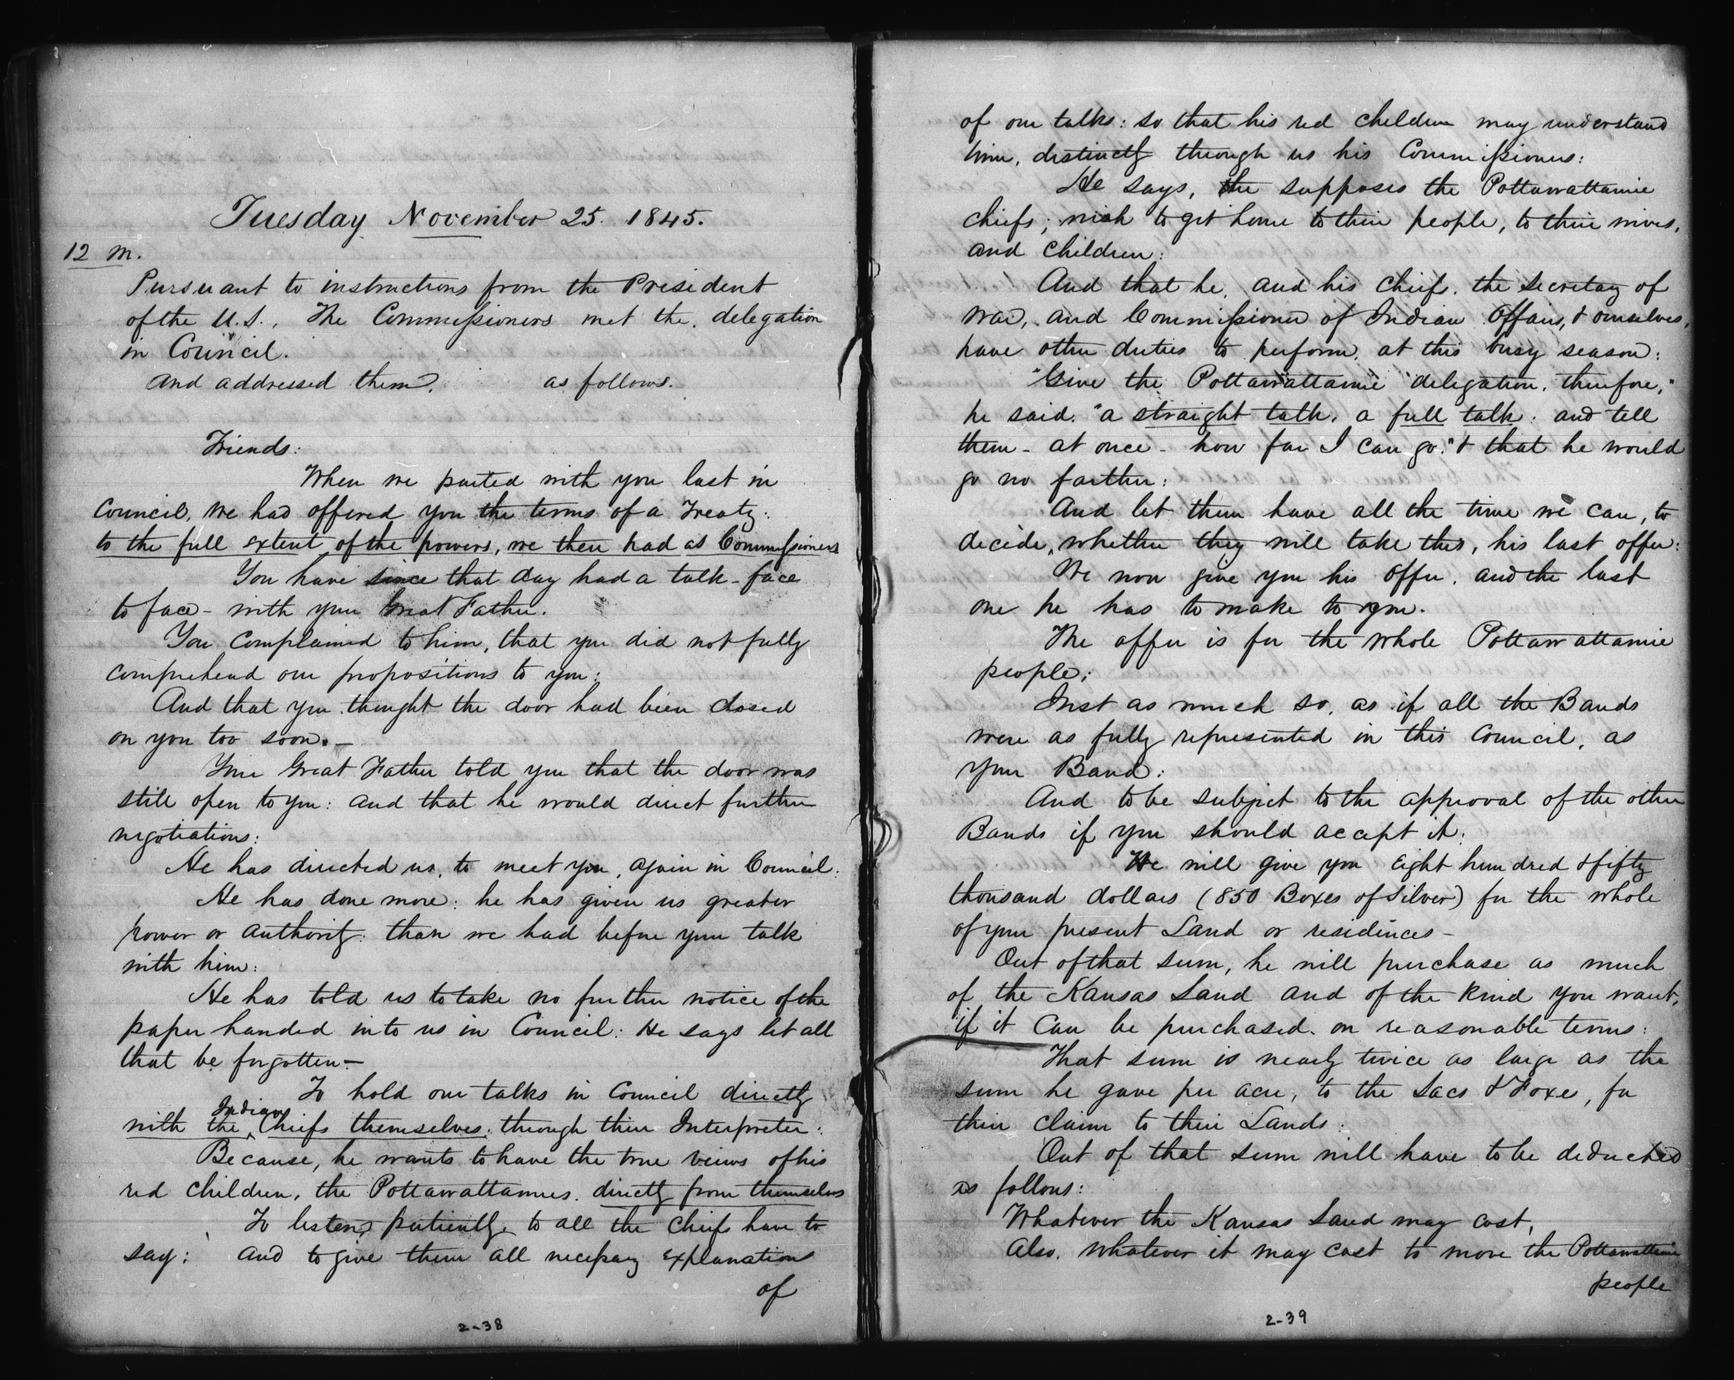 Tuesday November 25. 1845.
12 M.
Pursuant to instructions from the President
of the U.S., The Commissioners met the delegation
in Council.
and addressed them, as follows.
Friends:
When we parted with you last in
Council, we had offered you the terms of a Treaty:
to the full extent of the powers, we then had as Commissioners
You have since that day had a talk - face
to face - with your Great Father.
You complained to him, that you did not fully
comprehend our propositions to you:
And that you thought the door had been closed
on you too soon. —
Your Great Father told you that the door was
still open to you: and that he would direct further
negotiations:
He has directed us, to meet you, again in Council:
He has done more: he has given us greater
power or authority: than we had before your talk
with him:
He has told us to take no further notice of the
paper handed in to us in Council: He says let all
that be forgotten —
To hold our talks in Council directly
with the Indian Chiefs themselves: through their Interpreter:
Because, he wants to have the true views of his
red children, the Pottawattamies. directly from themselves
To listen, patiently, to all the chiefs have to
say: and to give them all necessary explanations
of
2-38
of our talks: so that his red children may understand
him, distinctly through us his Commissioners:
He says, he supposes the Pottawattamie
chiefs; wish to get home to their people, to their wives,
and children:
And that he, and his chiefs, the Secretary of
War, and Commissioner of Indian Affairs, & ourselves,
have other duties to perform, at this busy season:
"Give the Pottawattamie delegation, therefore,"
he said. "a straight talk, a full talk: and tell
them - at once - how far I can go:" & that he would
go no farther:
And let them have all the time we can, to
decide, whether they will take this, his last offer:
We now give you his offer, and the last
one he has to make to you.
The offer is for the whole Pottawattamie
people;
Just as much so, as if all the Bands
were as fully represented in this Council, as
your Band:
And to be subject to the approval of the other
Bands if you should accept it:
He will give you Eight hundred & fifty
thousand dollars (850 Boxes of Silver) for the whole
of your present Land or residences —
Out of that sum, he will purchase as much
of the Kansas Land and of the kind you want,
if it can be purchased on reasonable terms:
That sum is nearly twice as large as the
sum he gave per acre, to the Sacs & Foxes, for
their claim to their Lands:
Out of that sum will have to be deducted
as follows:
Whatever the Kansas Land may cost,
Also, whatever it may cost to move the Pottawattamie
people
2-39